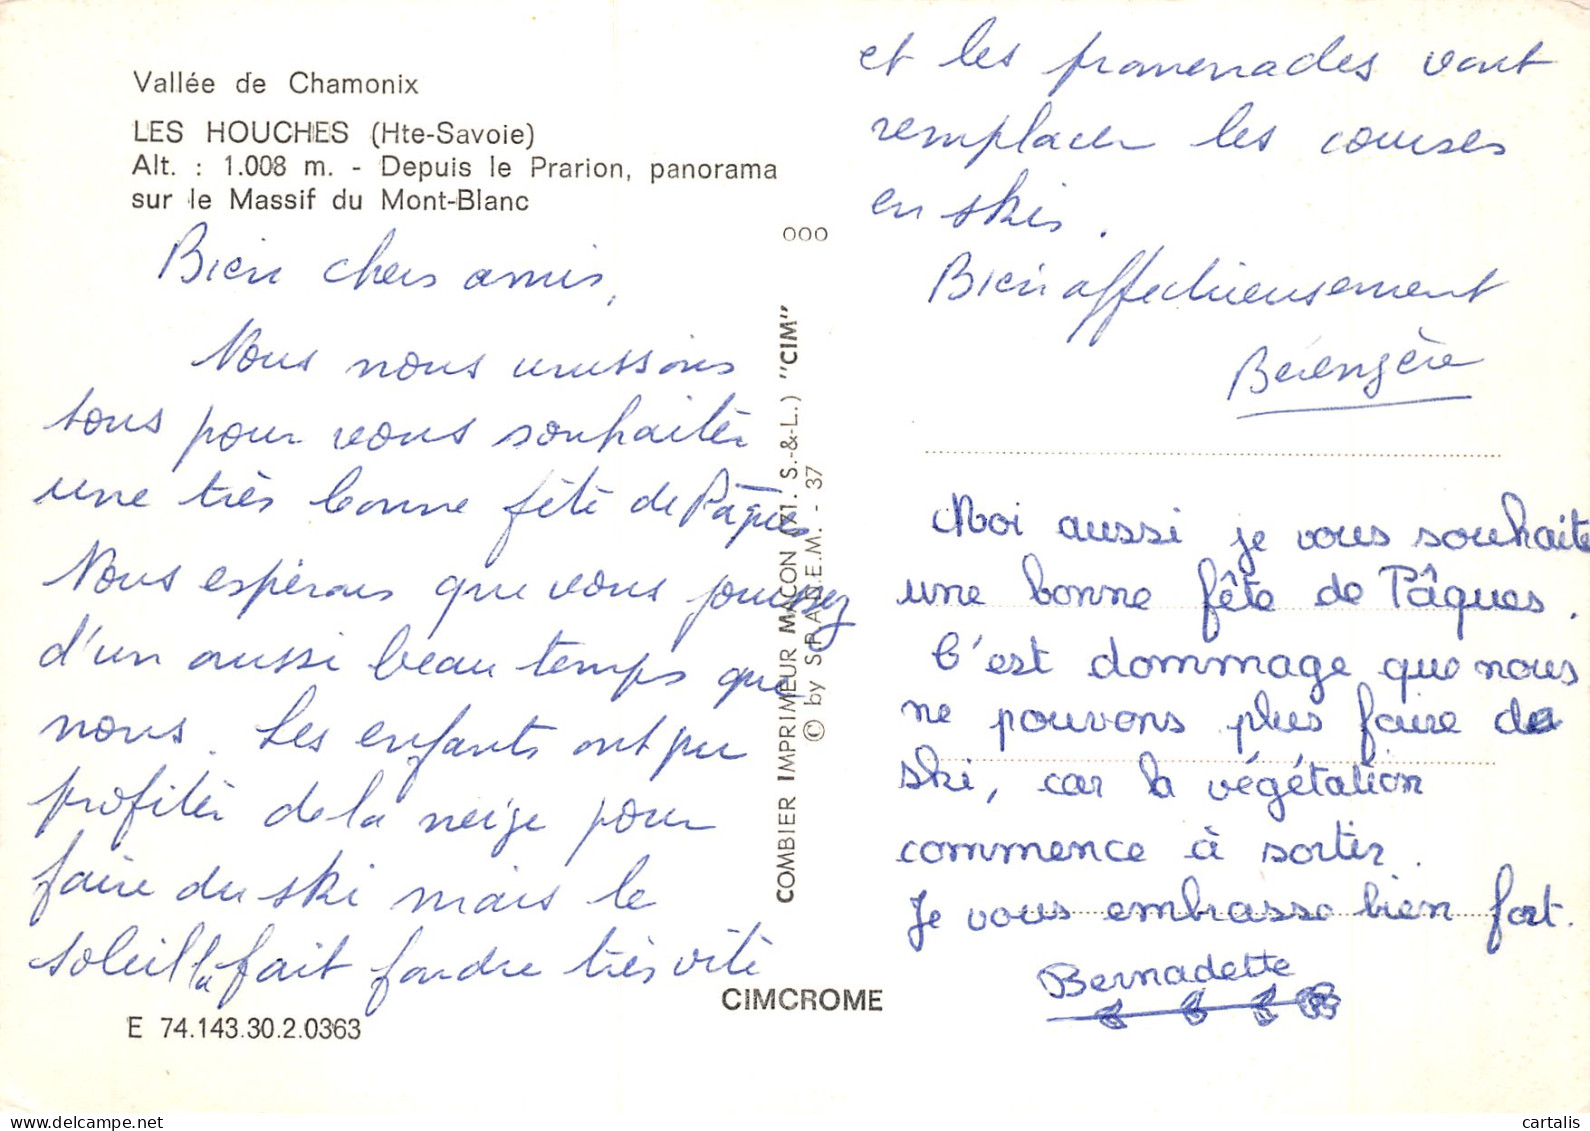 Vallée de Chamonix
LES HOUCHES (Hte-Savoie)
Alt. : 1.008 m. - Depuis le Prarion, panorama
sur le Massif du Mont-Blanc
Bien chers amis,
Nous nous unissons
tous pour vous souhaiter
une très bonne fête de Pâques
Nous espérons que vous jouissez
d'un aussi beau temps que
nous. Les enfants ont pu
profiter de la neige pour
faire du ski mais le
soleil la fait fondre très vite
E 74.143.30.2.0363
ooo
COMBIER IMPRIMEUR MACON (XI. S.-&-L.) "CIM"
© by S.P.A.D.E.M. - 37
CIMCROME
et les promenades vont
remplacer les courses
en skis.
Bien affectueusement
Bérengère
Moi aussi je vous souhaite
une bonne fête de Pâques.
C'est dommage que nous
ne pouvons plus faire de
ski, car la végétation
commence à sortir.
Je vous embrasse bien fort.
Bernadette
cartalis.com